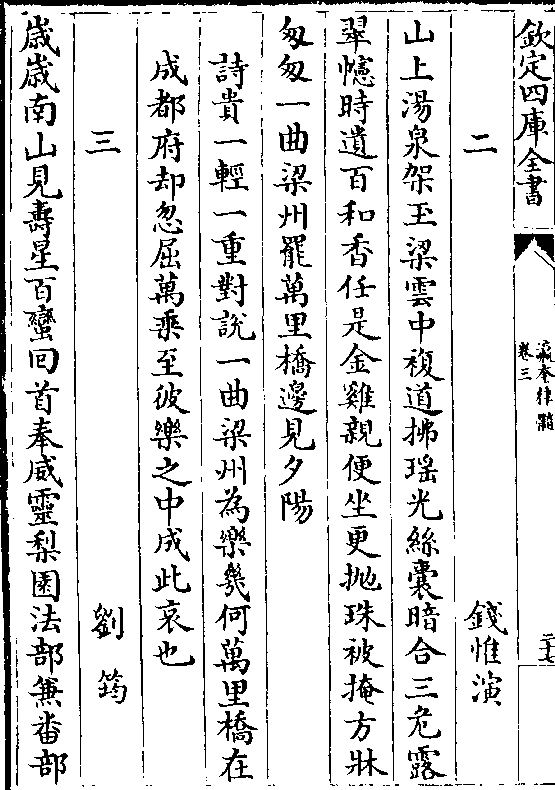 欽定四庫全書
瀛奎律髓
卷三
二十七
二 錢惟演
山上湯泉架玉梁雲中複道拂瑶光絲囊暗合三危露
翠幰時遺百和香任是金雞親便坐更抛珠被掩方牀
匆匆一曲梁州罷萬里橋邊見夕陽
詩貴一輕一重對說一曲梁州為樂幾何萬里橋在
成都府却忽屈萬乘至彼樂之中成此哀也
三 劉筠
歲歲南山見壽星百蠻回首奉威靈梨園法部兼畨部